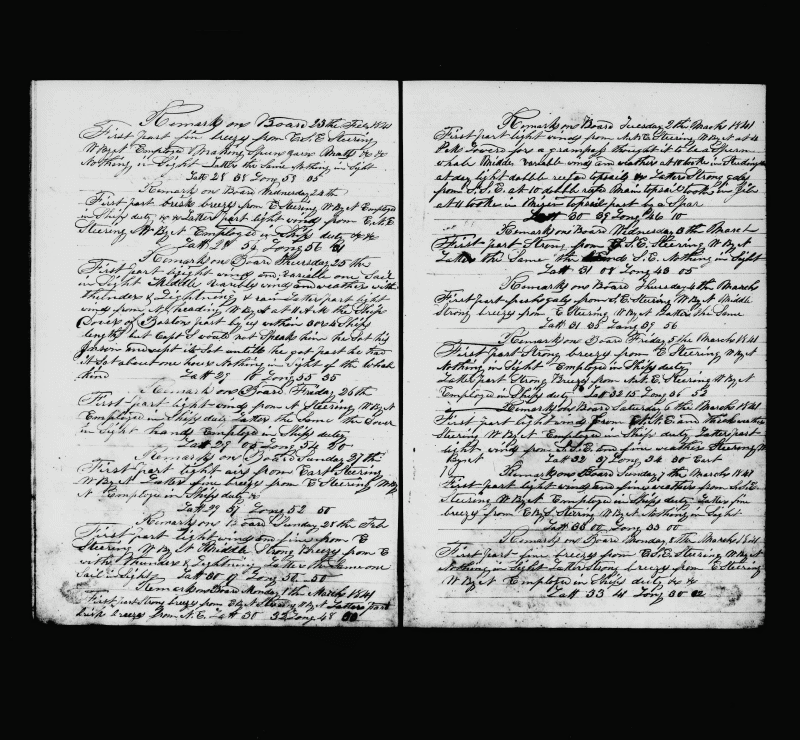 Remarks on Board 23th Feb 1841
First part fine breezy from E.S.E Steering
W By N Employed Making Spun yarn Matts &c &c
Nothing in Sight Latter the Same Nothing in Sight
Latt 28 38 Long 58 05
Remarks on Board Wednesday 24th
First part brisk breezy from E Steering W By N Employed
in Ships duty &c Latter part light winds from E.N.E
Steering W By N Employed in Ships duty &c &c
Latt 28 54 Long 56
Remarks on Board Thursday 25th
First part light winds and varible one Sail
in Sight Middle varibly winds and weather with
thunder & Lightning & rain Latter part light
winds from N heading W By S at 11 A.M the Ship
Dover of Boston part by us within 3 or 4 Ships
lengths but Capt S would not Speak him he Sat his
and kept it Sat untill he got past he had
it Sat about one hour Nothing in Sight of the Whale
kind Latt 29 10 Long 55 35
Remarks on Board Friday 26th
First part light winds from N Steering W By N
Employed in Ships duty Latter the Same the Dover
in Sight hands Employed in Ships duty
Latt 29 05 Long 54 20
Remarks on Board Sunday 27th
First part light airs from East Steering
W By N Latter fine breezy from E Steering W By
N Employed in Ships duty &c
Latt 29 51 Long 52 50
Remarks on Board Sunday 28th Feb
First part light winds an fine from E
Steering W By N Middle Strong Breezy from E
with Thunder & Lightning Latter the Same one
Sail in Sight Latt 30 Long 50
Remarks on Board Monday 1th March 1841
First part Strong breezy from E By N Steering W By N Latter part
brisk breezy from N.E. Latt 30 32 Long 48
Remarks on Board Tuesday 2th March 1841
First part light winds from N.N.E Steering W By N at 4
Oclk lowered for a grampass thought it to be a Sperm
whale Middle variable winds an weather at 10 took in Studings
at day light dobble reefd topsails &c Latter Strong galy
from S.S.E. at 10 dobble refs Main topsail took in Jib
at 11 took in Mizen topsail part by a Spar
Latt 30 39 Long 46 10
Remarks on Board Wednesday 3th March
First part Strong from S.E. Steering W By N
Latter the Same the S.E. Nothing in Sight
Latt 31 08 Long 43 05
Remarks on Board Thursday 4th March
First part fresh galy from S.E Steering W By N Middle
Strong breezy from E Steering W By N Latter the Same
Latt 31 35 Long 39 56
Remarks on Board Friday 5th March 1841
First part Strong breezy from E Steering W By N
Nothing in Sight Employed in Ships duty
Latter part Strong Breezy from N.E. Steering W By N
Employed in Ships duty Latt 32 15 Long 36 53
Remarks on Board Saturday 6th March 1841
First part light winds from E and thick weather
Steering W By N Employed in Ships duty Latter part
light winds from S.S.E. and fine weather Steering W
By N Latt 32 37 Long 34 30 East
Remarks on Board Sunday 7th March 1841
First part light winds and fine weather from S.S.E.
Steering W By N Employed in Ships duty Latter fine
breezy from E By S Steering W By N Nothing in Sight
Latt 33 00 Long 33 00
Remarks on Board Monday 8th March 1841
First part fine breezy from E.S.E Steering W By N
Nothing in Sight Latter Strong breezy from E Steering
W By N Employed in Ships duty &c &c
Latt 33 41 Long 30 02